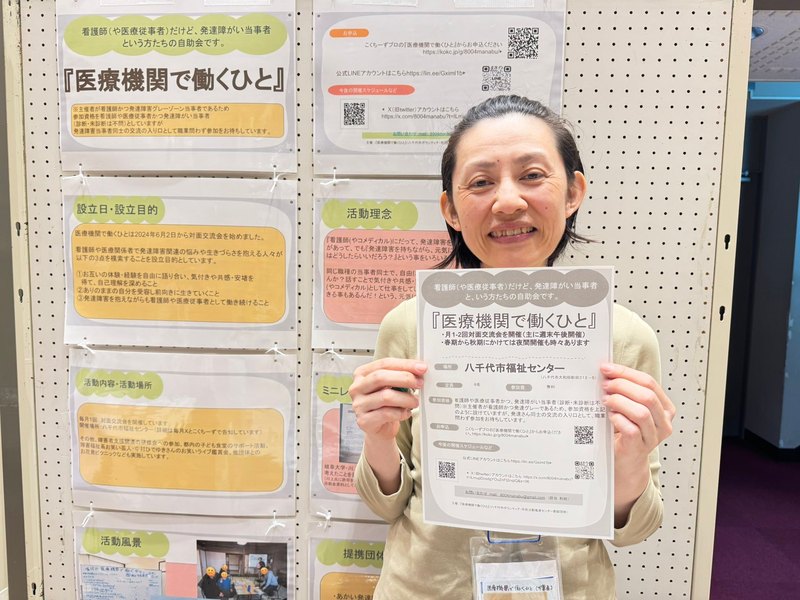 看護師(や医療従事者)だけど、発達障がい当事者
という方たちの自助会です。
『医療機関で働くひと』
※主催者が看護師かつ発達障害グレーゾーン当事者であるため
参加資格を看護師や医療従事者かつ発達障がい当事者
(診断・未診断は不問)としていますが
発達障害当事者同士の交流の入り口として職業問わず参加をお待ちしています。
お申込
こくちーずプロの『医療機関で働くひと』からお申込ください
https://kokc.jp/g/8004manabu
公式LINEアカウントはこちらhttps://lin.ee/Gximl1b
今後の開催スケジュールなど
・X(旧twitter)アカウントはこちら
設立日・設立目的
医療機関で働くひとは2024年6月2日から対面交流会を始めました。
看護師や医療関係者で発達障害関連の悩みや生きづらさを抱える人々が
以下の3点を模索することを設立目的としています。
①お互いの体験・経験を自由に語り合い、気付きや共感・安堵を
得て、自己理解を深めること
②ありのままの自分を受容し前向きに生きていくこと
③発達障害を抱えながらも看護師や医療従事者として働き続けること
活動理念
『看護師(やコメディカル)にだって、発達障
があって、でも『発達障害を持ちながら、元気に
はどうしたらいいだろう?』という事をいろいろ
同じ職種の当事者同士で、自由
んか?話すことで気付きや共感・
(やコメディカル)として仕事をして
きる事もあるんだ!という、元気
活動内容・活動場所
毎月1回 対面交流会を開催しています。
開催場所:八千代市福祉センター(詳細は毎月Xとこくちーずで告知しています)
その他、障害者支援関連の研修会への参加、都内の子ども食堂のサポート活動、
お花見ピクニックなども実施しています。
活動風景
ミニレ
提携団体
看護師(や医療従事者)だけど、発達障がい当事者
と、いう方たちの自助会です。
『医療機関で働くひと』
・月1-2回対面交流会を開催(主に週末午後開催)
・春期から秋期にかけては夜間開催も時々あります
場所
八千代市福祉センター
定員
参加費
無料
参加資格
看護師や医療従事者かつ、発達障がい当事者(診断・未診断は不
問)※主催者が看護師かつ発達グレーであるため、参加資格を上記
のように設けていますが、発達さん同士の交流の入り口として、職業
問わず参加をお待ちしています。
お申込
こくちーずプロの『医療機関で働くひと』からお申込くださ
い https://kokc.jp/g/8004manabu
今後の開催スケジュールなど
公式LINEアカウントはこちら https://lin.ee/Gximl1b
・X(旧twitter)アカウントはこちら
医療機関で働くひと